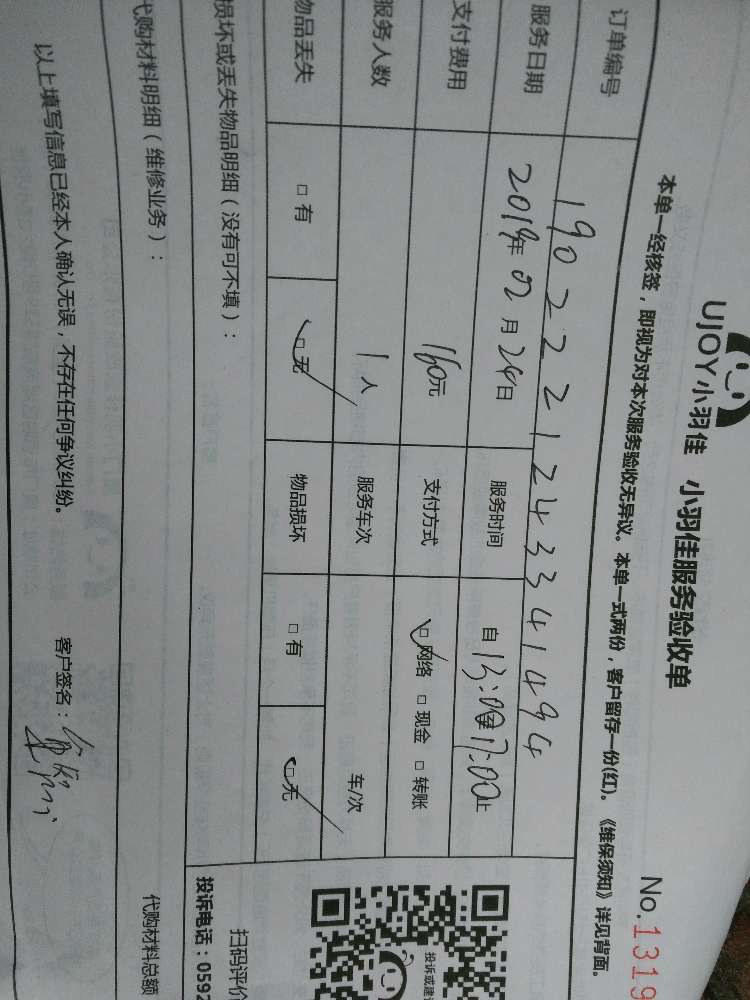 UJOY小羽佳 小羽佳服务验收单
No.1319
本单一经核签，即视为对本次服务验收无异议。本单一式两份，客户留存一份(红)。《维保须知》详见背面。
订单编号 1902221243341494
服务日期 2019年02月24日 服务时间 自13:00至17:00止
支付费用 160元 支付方式 □网络 □现金 □转账
服务人数 1人 服务车次 车/次
物品丢失 □有 □无 物品损坏 □有 □无
损坏或丢失物品明细（没有可不填）：
扫码评价
投诉电话：0592
投诉或建
代购材料明细（维修业务）：
代购材料总额
以上填写信息已经本人确认无误，不存在任何争议纠纷。 客户签名：